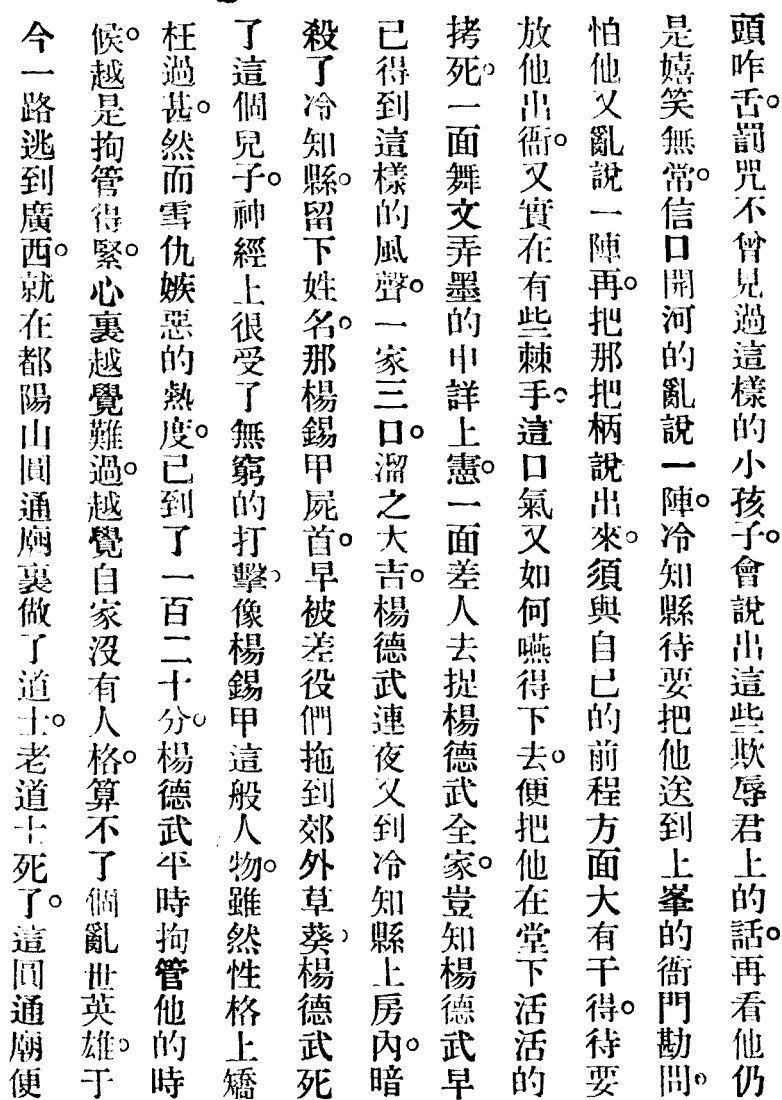 頭咋舌。罰咒不曾見過這樣的小孩子。會說出這些欺辱君上的話。再看他仍
是嬉笑無常。信口開河的亂說一陣。冷知縣待要把他送到上峯的衙門勘問。
怕他又亂說一陣。再把那把柄說出來。須與自己的前程方面大有干得。待要
放他出衙。又實在有些棘手。這口氣又如何嚥得下去。便把他在堂下活活的
拷死。一面舞文弄墨的申詳上憲。一面差人去捉楊德武全家。豈知楊德武早
已得到這樣的風聲。一家三口。溜之大吉。楊德武連夜又到冷知縣上房內。暗
殺了冷知縣。留下姓名。那楊錫甲屍首。早被差役們拖到郊外草葵。楊德武死
了這個兒子。神經上很受了無窮的打擊。像楊錫甲這般人物。雖然性格上矯
枉過甚。然而雪仇嫉惡的熱度。已到了一百二十分。楊德武平時拘管他的時
候。越是拘管得緊。心裏越覺難過。越覺自家沒有人格。算不了個亂世英雄。于
今一路逃到廣西。就在都陽山圓通廟裏做了道士。老道士死了。這圓通廟便